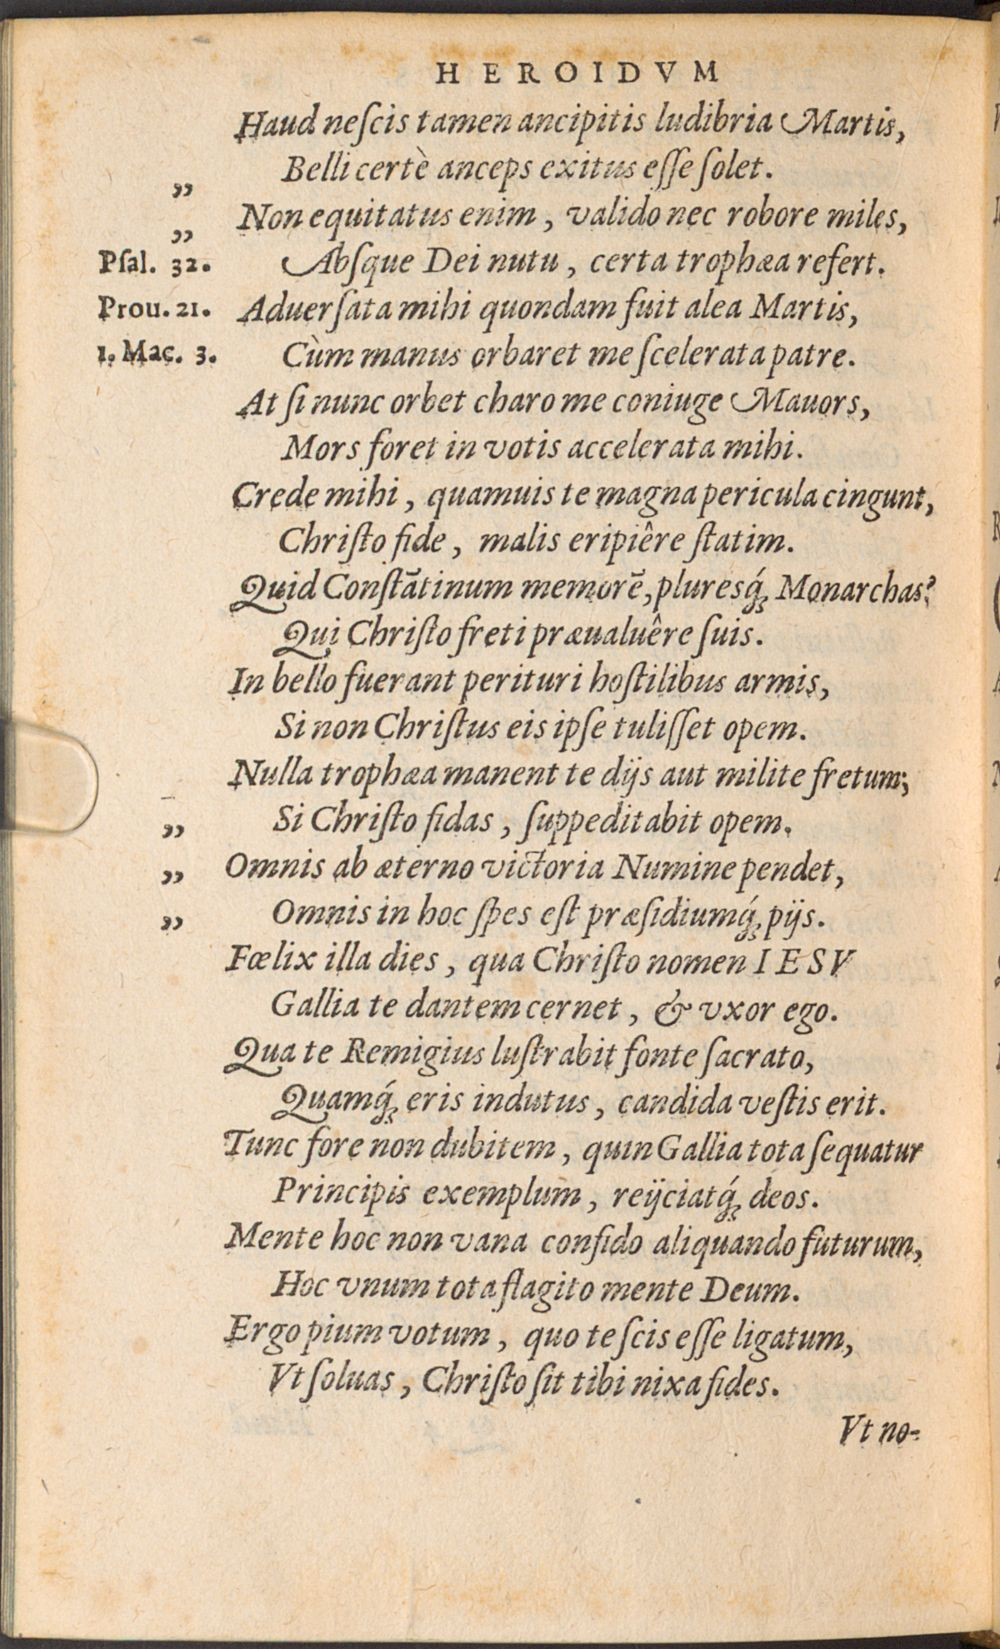 HEROIDVM
Haud neſcis tamen ancipitis ludibria Martis,
Belli certè anceps exitus eſſe ſolet.
„ Non equitatus enim, valido nec robore miles,
„ Abſque Dei nutu, certa trophæa refert.
Pſal. 32.
Aduerſata mihi quondam fuit alea Martis,
Prou. 21.
Cùm manus orbaret me ſcelerata patre.
1. Mac. 3.
At ſi nunc orbet charo me coniuge Mauors,
Mors foret in votis accelerata mihi.
Crede mihi, quamuis te magna pericula cingunt,
Chriſto fide, malis eripiêre ſtatim.
Quid Conſtãtinum memorẽ, pluresq́; Monarchas?
Qui Chriſto freti præualuêre ſuis.
In bello fuerant perituri hoſtilibus armis,
Si non Chriſtus eis ipſe tuliſſet opem.
Nulla trophæa manent te dijs aut milite fretum;
„ Si Chriſto fidas, ſuppeditabit opem.
„ Omnis ab æterno victoria Numine pendet,
„ Omnis in hoc ſpes eſt præſidiumq́; pijs.
Fœlix illa dies, qua Chriſto nomen IESV
Gallia te dantem cernet, & vxor ego.
Qua te Remigius luſtrabit fonte ſacrato,
Quamq́; eris indutus, candida veſtis erit.
Tunc fore non dubitem, quin Gallia tota ſequatur
Principis exemplum, reijciatq́; deos.
Mente hoc non vana confido aliquando futurum,
Hoc vnum tota flagito mente Deum.
Ergo pium votum, quo te ſcis eſſe ligatum,
Vt ſoluas, Chriſto ſit tibi nixa fides.
Vt no-